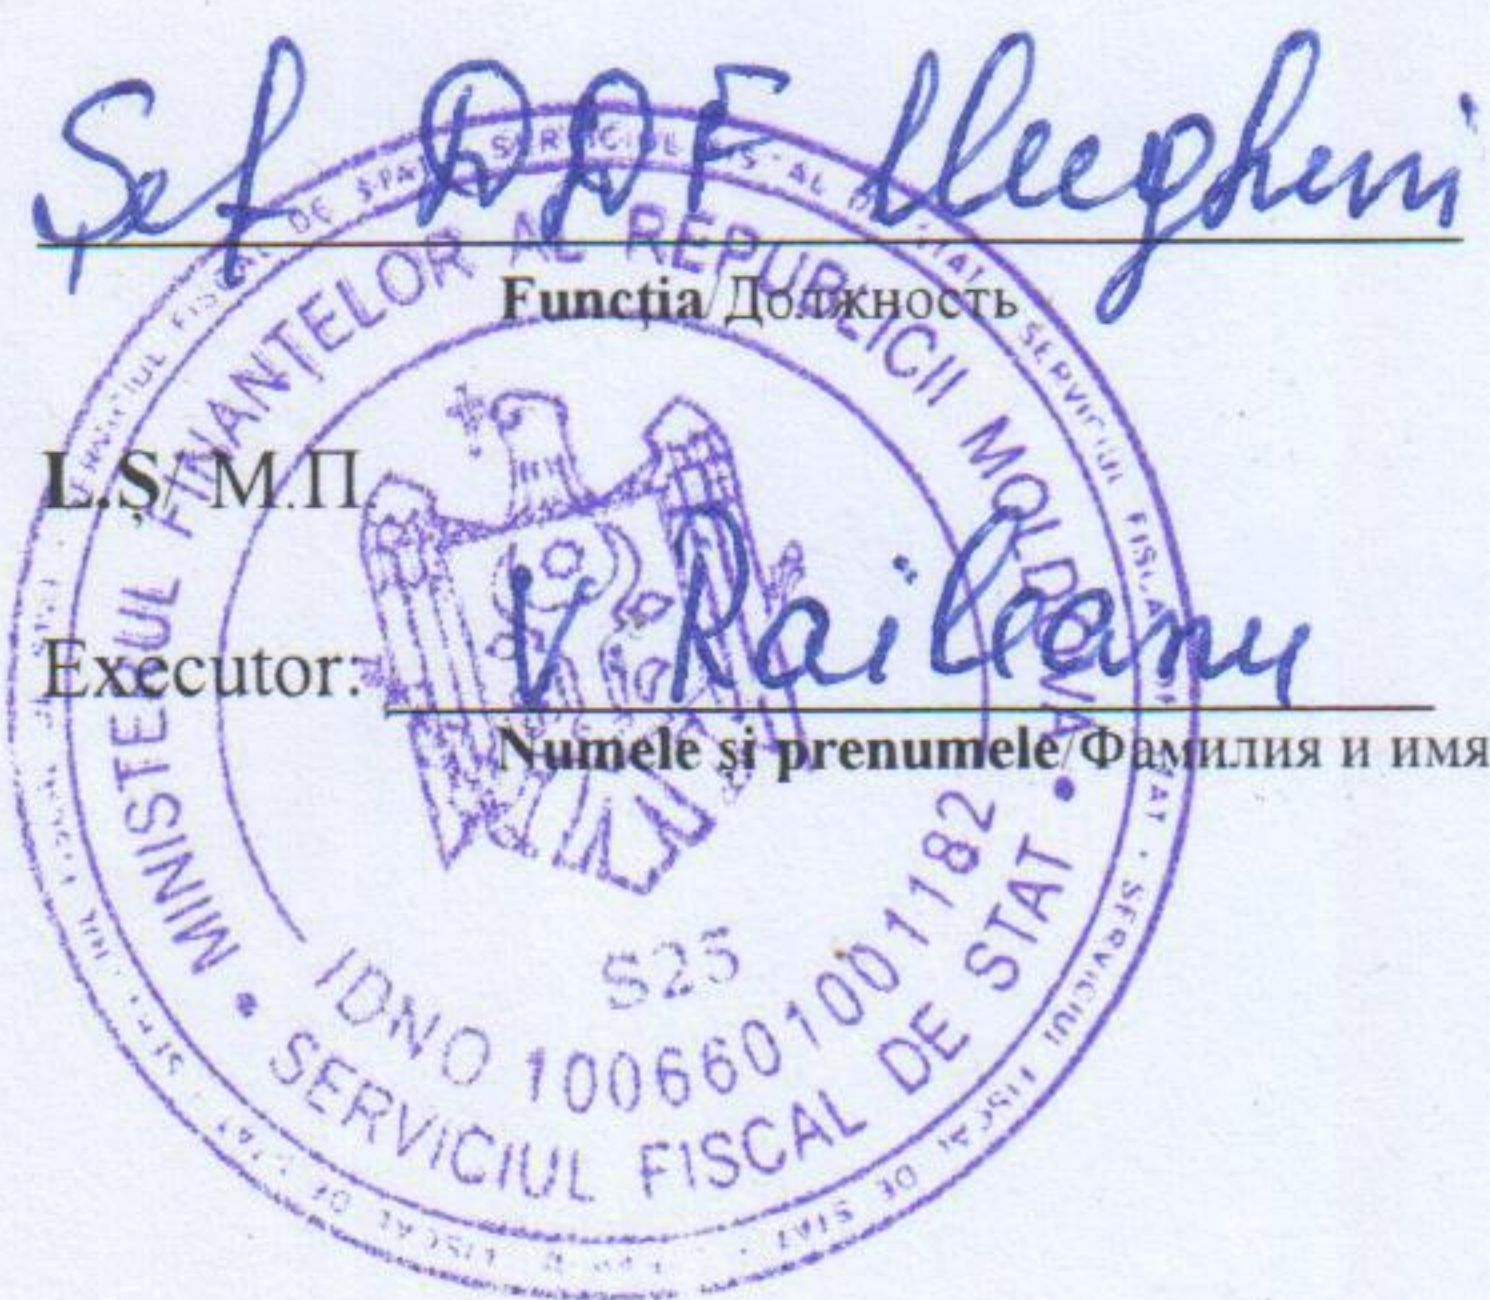 Șef DDF Ungheni
Funcția/Должность
L.Ș/ М.П.
Executor: V Raileanu
Numele si prenumele/Фамилия и имя
MINISTERUL FINANȚELOR AL REPUBLICII MOLDOVA
SERVICIUL FISCAL DE STAT
IDNO 1006601001182
S25
SERVICIUL FISCAL DE STAT